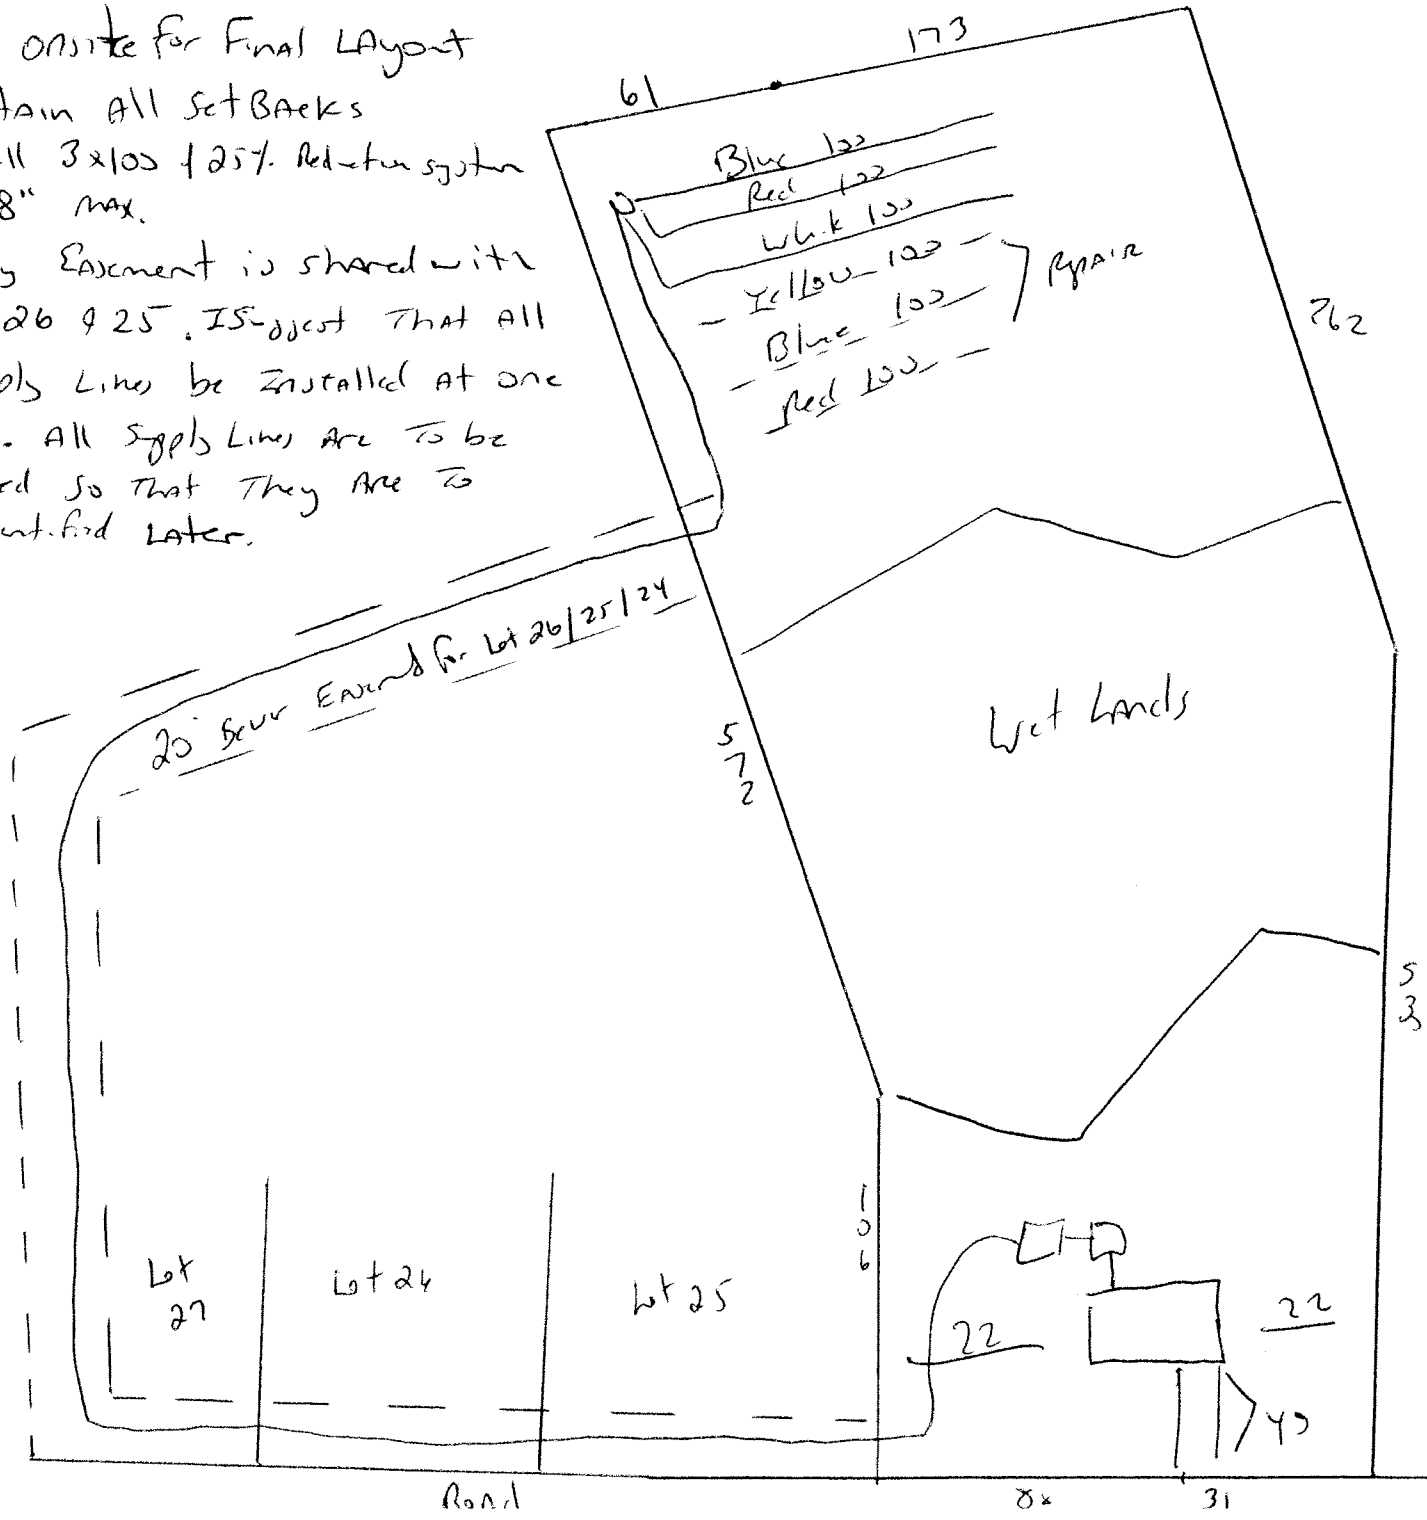 onsite for Final Layout
tain All SetBacks
ll 3x100 f 25%. Reduction system
8" MAX.
y Easement is shared with
26 & 25. I Suggest That All
ply Lines be Installed At one
. All Supply Lines Are To be
ed So That They Are To
ent.find Later.
61
173
Blue 100
Red 100
White 100
Yellow 100
Blue 100
Red 100
Repair
262
20' Sewer Easement For Lot 26/25/24
572
Wet Lands
53
106
Lot
27
Lot 26
Lot 25
22
22
Road
31